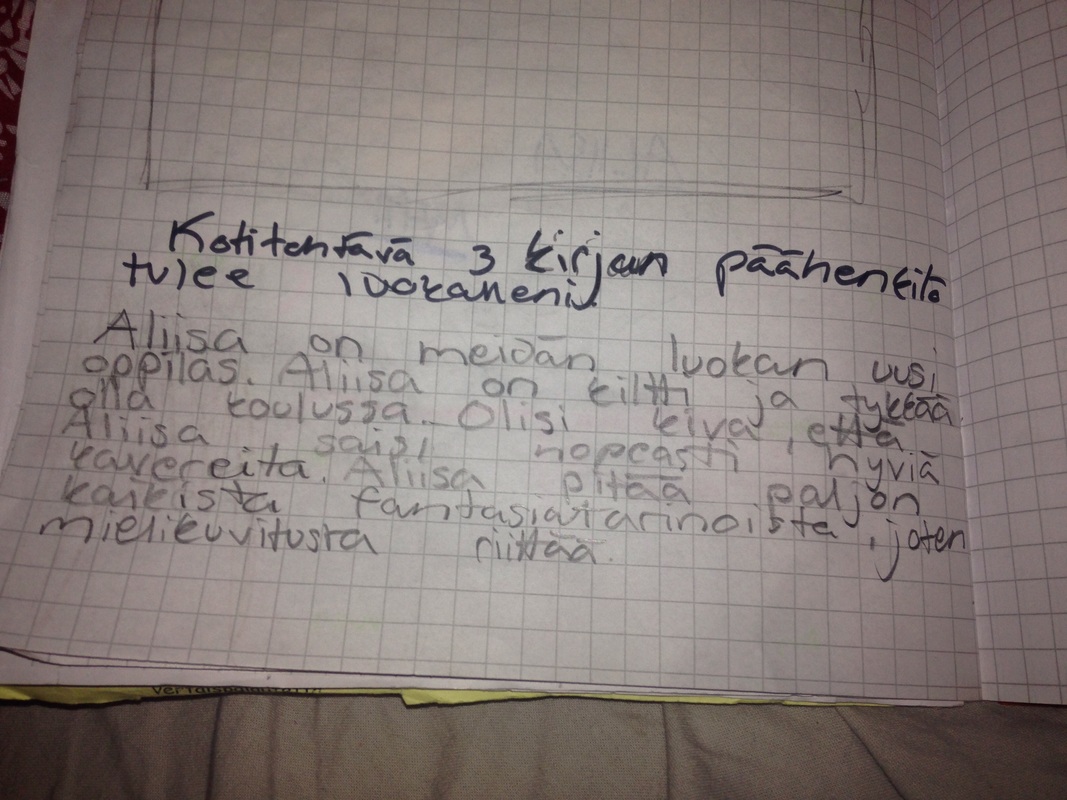 Kotitentävä 3 kirjan päähenkilö
tulee luokalleni.
Aliisa on meidän luokan uusi
oppilas. Aliisa on kiltti ja tykkää
olla koulussa. Olisi kiva, että
Aliisa saisi nopeasti hyviä
kavereita. Aliisa pitää paljon
kaikista fantasiatarinoista, joten
mielikuvitusta riittää.